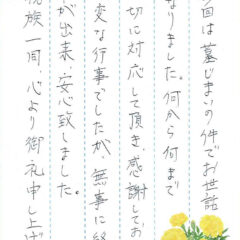 今回は墓じまいの件でお世話
なりました。何から何まで
切に対応して頂き、感謝してお
変な行事でしたが、無事に終
が出来、安心致しました。
親族一同、心より御礼申し上げ